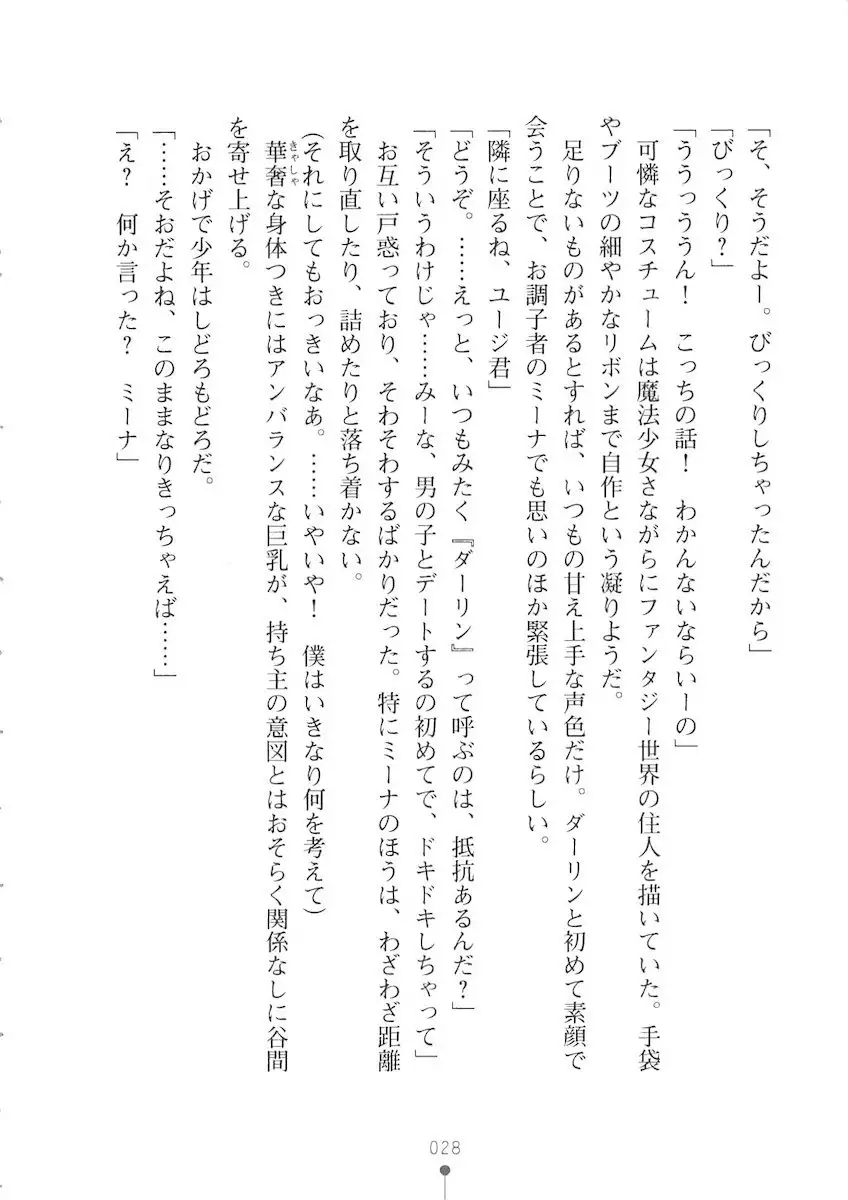 「そ、そうだよー。びっくりしちゃったんだから」
「びっくり?」
「ううっううん! こっちの話! わかんないならいーの」
可憐なコスチュームは魔法少女さながらにファンタジー世界の住人を描いていた。手袋
やブーツの細やかなリボンまで自作という凝りようだ。
足りないものがあるとすれば、いつもの甘え上手な声色だけ。ダーリンと初めて素顔で
会うことで、お調子者のミーナでも思いのほか緊張しているらしい。
「隣に座るね、ユージ君」
「どうぞ。……えっと、いつもみたく『ダーリン』って呼ぶのは、抵抗あるんだ?」
「そういうわけじゃ……みーな、男の子とデートするの初めてで、ドキドキしちゃって」
お互い戸惑っており、そわそわするばかりだった。特にミーナのほうは、わざわざ距離
を取り直したり、詰めたりと落ち着かない。
(それにしてもおっきいなぁ。……いやいや! 僕はいきなり何を考えて)
華奢な身体つきにはアンバランスな巨乳が、持ち主の意図とはおそらく関係なしに谷間
きゃしゃ
を寄せ上げる。
おかげで少年はしどろもどろだ。
「……そおだよね、このままなりきっちゃえば……」
「え? 何か言った? ミーナ」
028